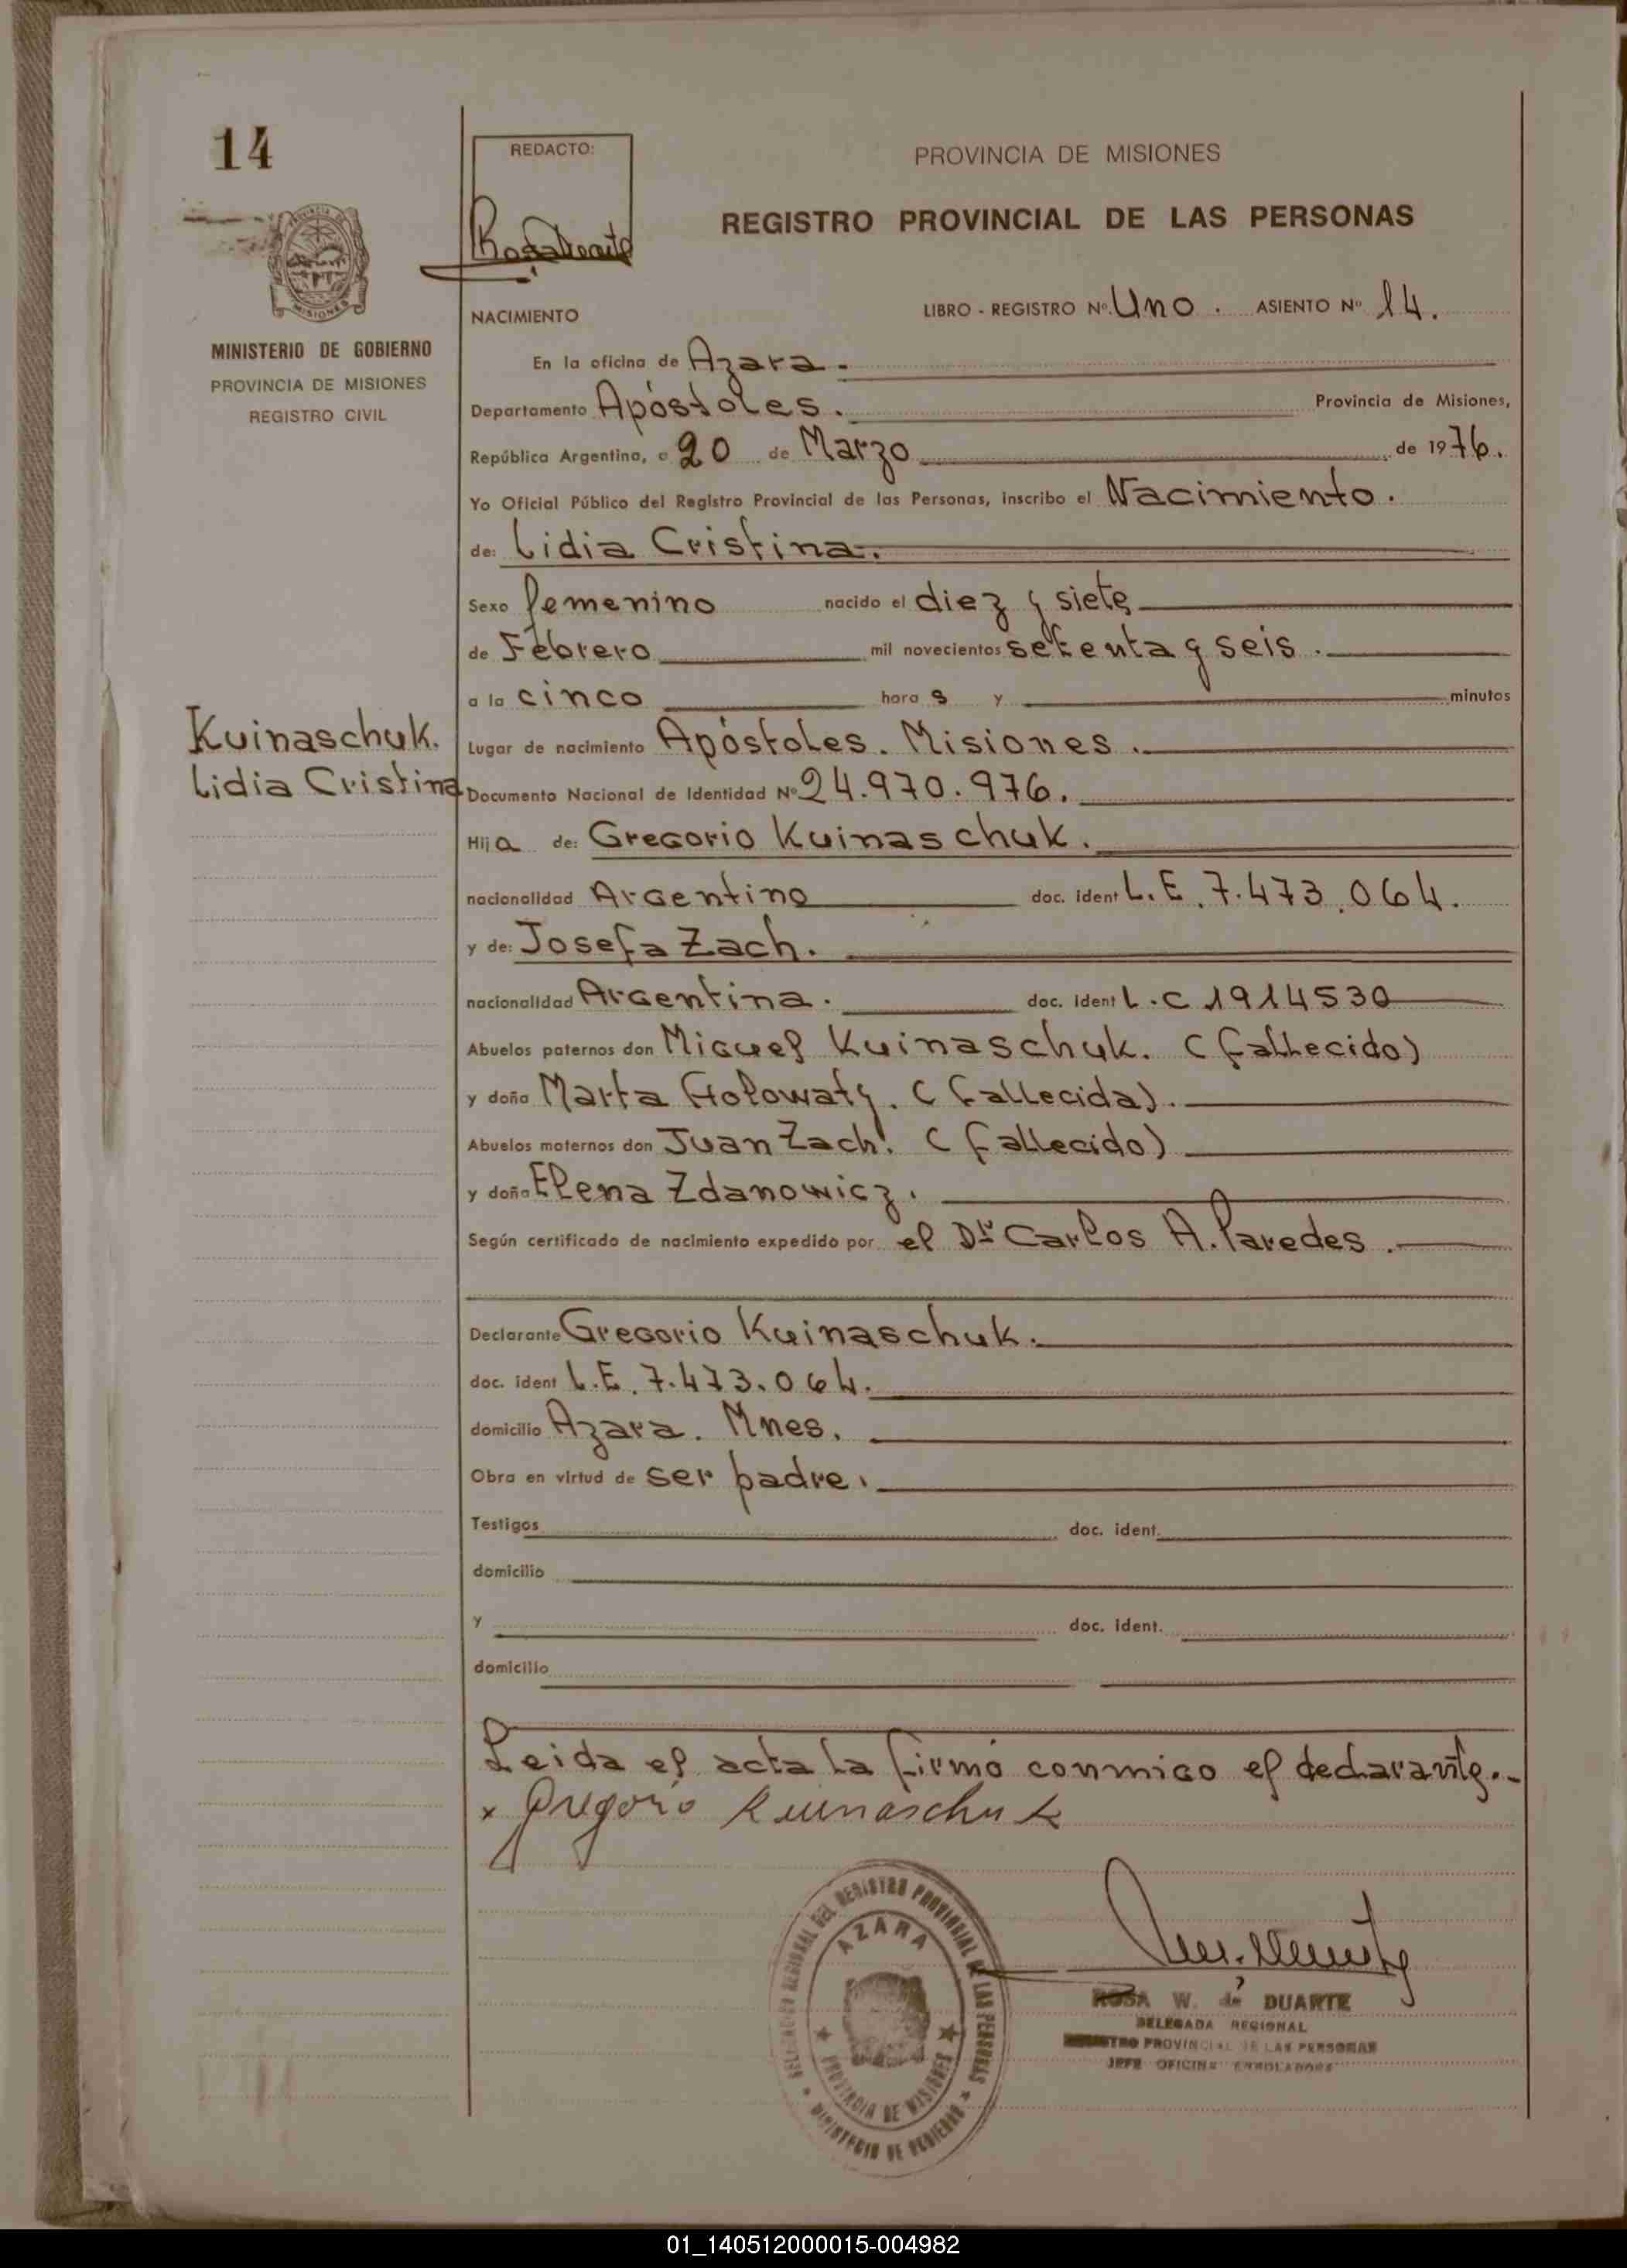 14
REDACTO:
PROVINCIA DE MISIONES
REGISTRO PROVINCIAL DE LAS PERSONAS
MISIONES
MINISTERIO DE GOBIERNO
PROVINCIA DE MISIONES
REGISTRO CIVIL
NACIMIENTO
LIBRO - REGISTRO Nº. Uno. ASIENTO Nº 14.
En la oficina de Azara.
Departamento Apóstoles. Provincia de Misiones,
República Argentina, a 20 de Marzo de 1976.
Yo Oficial Público del Registro Provincial de las Personas, inscribo el Nacimiento.
de: Lidia Cristina.
Sexo femenino nacido el diez y siete
de Febrero mil novecientos setenta y seis.
a la cinco hora s y minutos
Kuinaschuk.
Lidia Cristina
Lugar de nacimiento Apóstoles. Misiones.
Documento Nacional de Identidad Nº 24.970.976.
Hij a de: Gregorio Kuinaschuk.
nacionalidad Argentino doc. ident L.E. 7.473.064.
y de: Josefa Zach.
nacionalidad Argentina. doc. ident L.C 1914530
Abuelos paternos don Miguel Kuinaschuk. (fallecido)
y doña Marta Holowaty. (fallecida).
Abuelos maternos don Juan Zach. (fallecido)
y doña Elena Zdanowicz.
Según certificado de nacimiento expedido por el Dr Carlos A. Paredes.
Declarante Gregorio Kuinaschuk.
doc. ident L.E. 7.473.064.
domicilio Azara. Mnes.
Obra en virtud de ser padre.
Testigos doc. ident.
domicilio
y doc. ident.
domicilio
Leida el acta la firmó conmigo el declarante.-
x Gregorio Kuinaschuk
DELEGACION REGIONAL DEL REGISTRO PROVINCIAL DE LAS PERSONAS
AZARA
PROVINCIA DE MISIONES
MINISTERIO DE GOBIERNO
ROSA W. de DUARTE
DELEGADA REGIONAL
REGISTRO PROVINCIAL DE LAS PERSONAS
JEFE OFICINA ENROLADORA
01_140512000015-004982